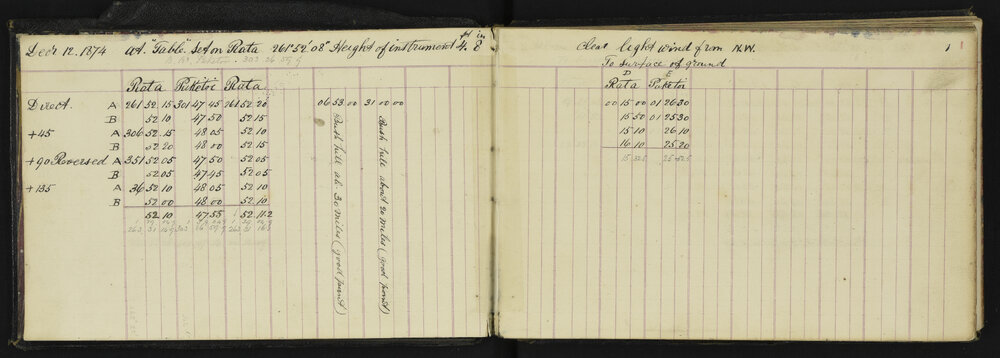 Dec'r 12. 1874 At "Table" Set on Rata 261° 52' 08" Height of instrument 4 ft 8 in Clear light wind from N.W. 1 1
303 26 59
To surface of ground
D E
Rata Puketoi Rata Rata Puketoi
Direct. A 261 52 15 301 47 45 261 52 20 06 53 00 31 00 00 00 15 00 01 26 30
B 52 10 47 50 52 15 15 50 01 25 30
+45 A 306 52 15 48 05 52 10 15 10 26 10
B 52 20 48 00 52 15 16 10 25 20
+90 Reversed A 351 52 05 47 50 52 05 15 32.5 25 52.5
B 52 05 47 45 52 05
+135 A 36 52 10 48 05 52 10
B 52 00 48 00 52 10
52 10 47 55 52 11.2
263 31 303 263 31
Bush hill ab. 30 miles (good point)
Bush hill about 20 miles (good point)